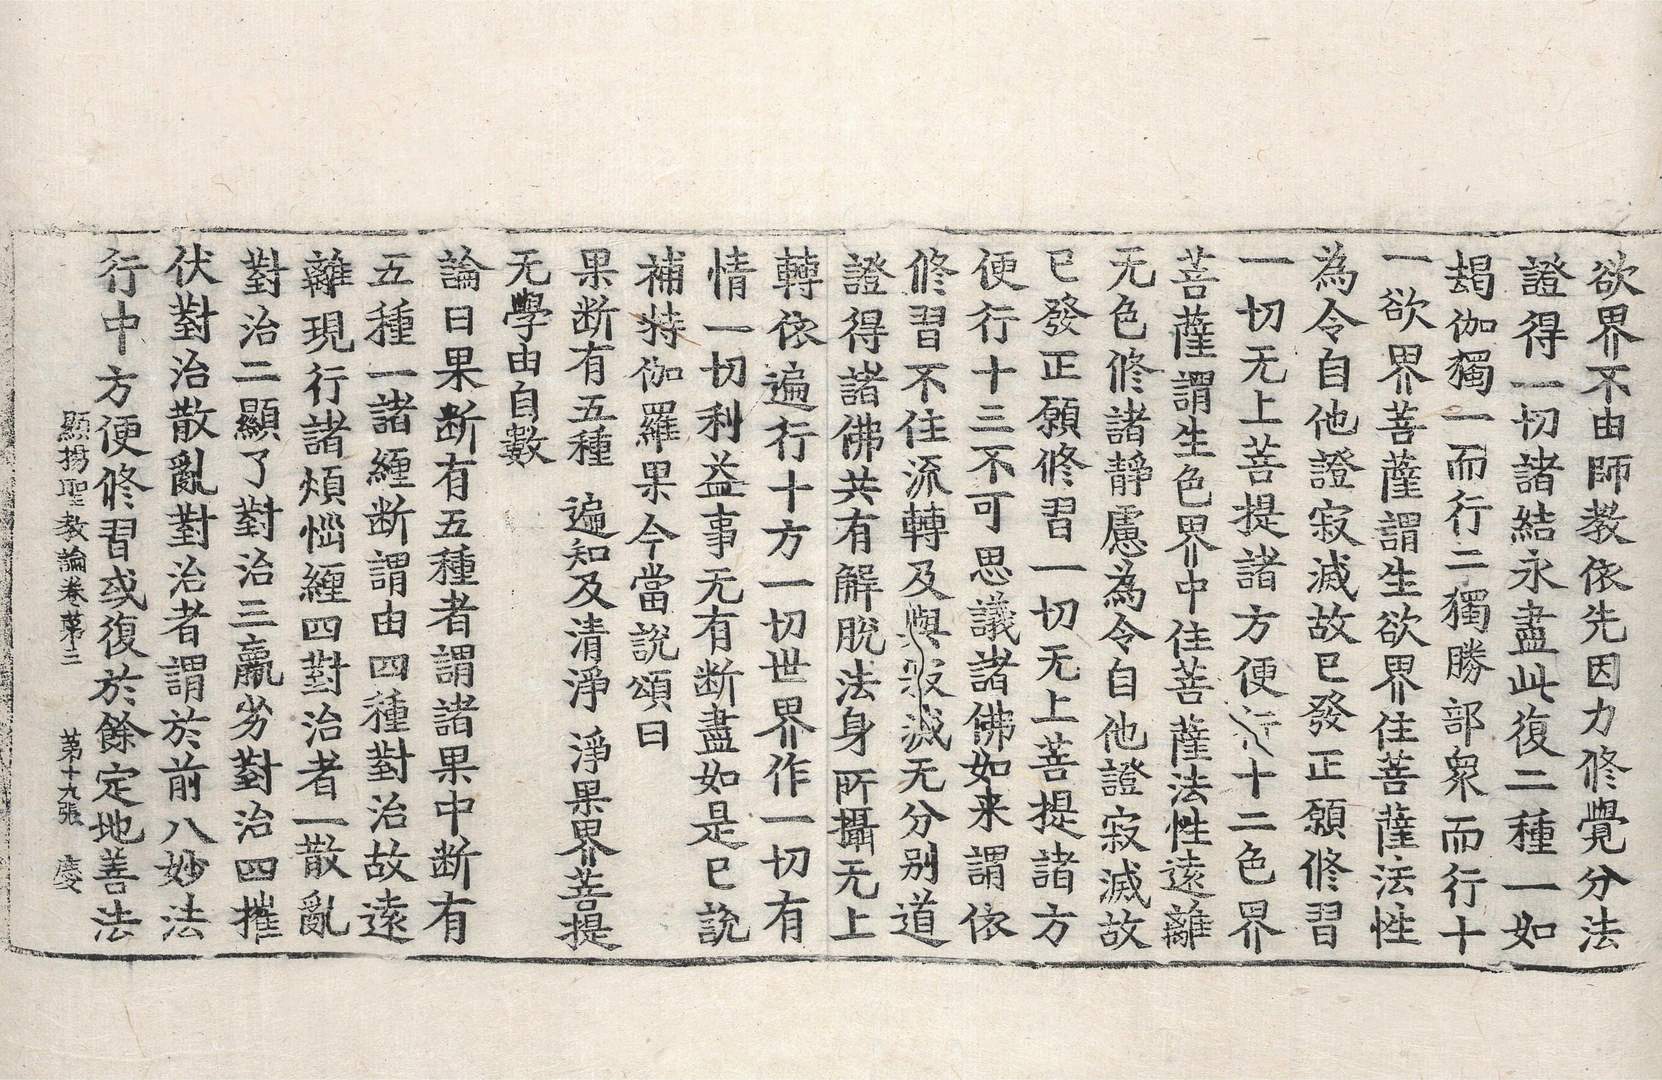 欲界不由師教依先因力修覺分法
證得一切諸結永盡此復二種一如
朅伽獨一而行二獨勝部衆而行十
一欲界菩薩謂生欲界住菩薩法性
為令自他證寂滅故已發正願修習
一切无上菩提諸方便行十二色界
菩薩謂生色界中住菩薩法性遠離
无色修諸靜慮為令自他證寂滅故
已發正願修習一切无上菩提諸方
便行十三不可思議諸佛如来謂依
修習不住流轉及與寂滅无分别道
證得諸佛共有解脫法身所攝无上
轉依遍行十方一切世界作一切有
情一切利益事无有断盡如是已說
補特伽羅果今當說頌曰
果断有五種　遍知及清淨　淨果界菩提
无學由自數
論曰果断有五種者謂諸果中断有
五種一諸纏断謂由四種對治故遠
離現行諸煩惱纏四對治者一散亂
對治二顯了對治三羸劣對治四摧
伏對治散亂對治者謂於前八妙法
行中方便修習或復於餘定地善法
顯揚聖教論卷苐十三　苐十九張　慶